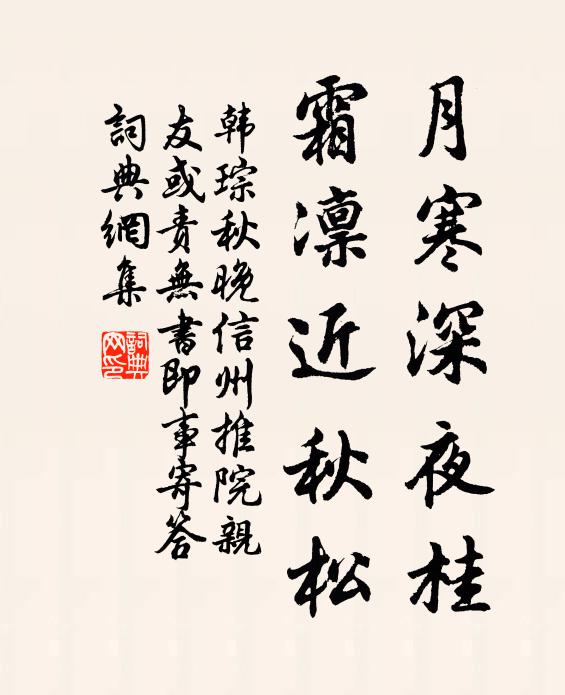 月寒深夜桂
霜凛近秋松
韩琮秋晚信州推院親
友或责無書即事寄答
詞典網集
詞典
网印